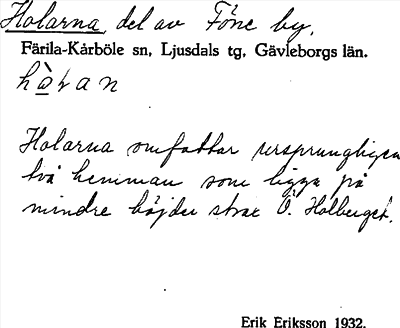 Holarna, del av Föne by,
Färila-Kårböle sn, Ljusdals tg, Gävleborgs län.
hòɽan
Holarna omfattar ursprungligen
två hemman som ligga på
mindre höjder strax Ö. Holberget.
Erik Eriksson 1932.